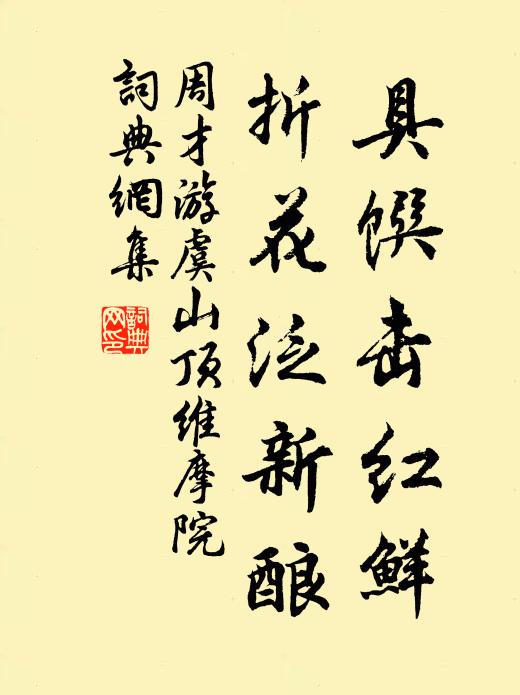 具馔击红鲜
折花泛新酿
周才游虞山顶维摩院
詞典網集
詞典
网印